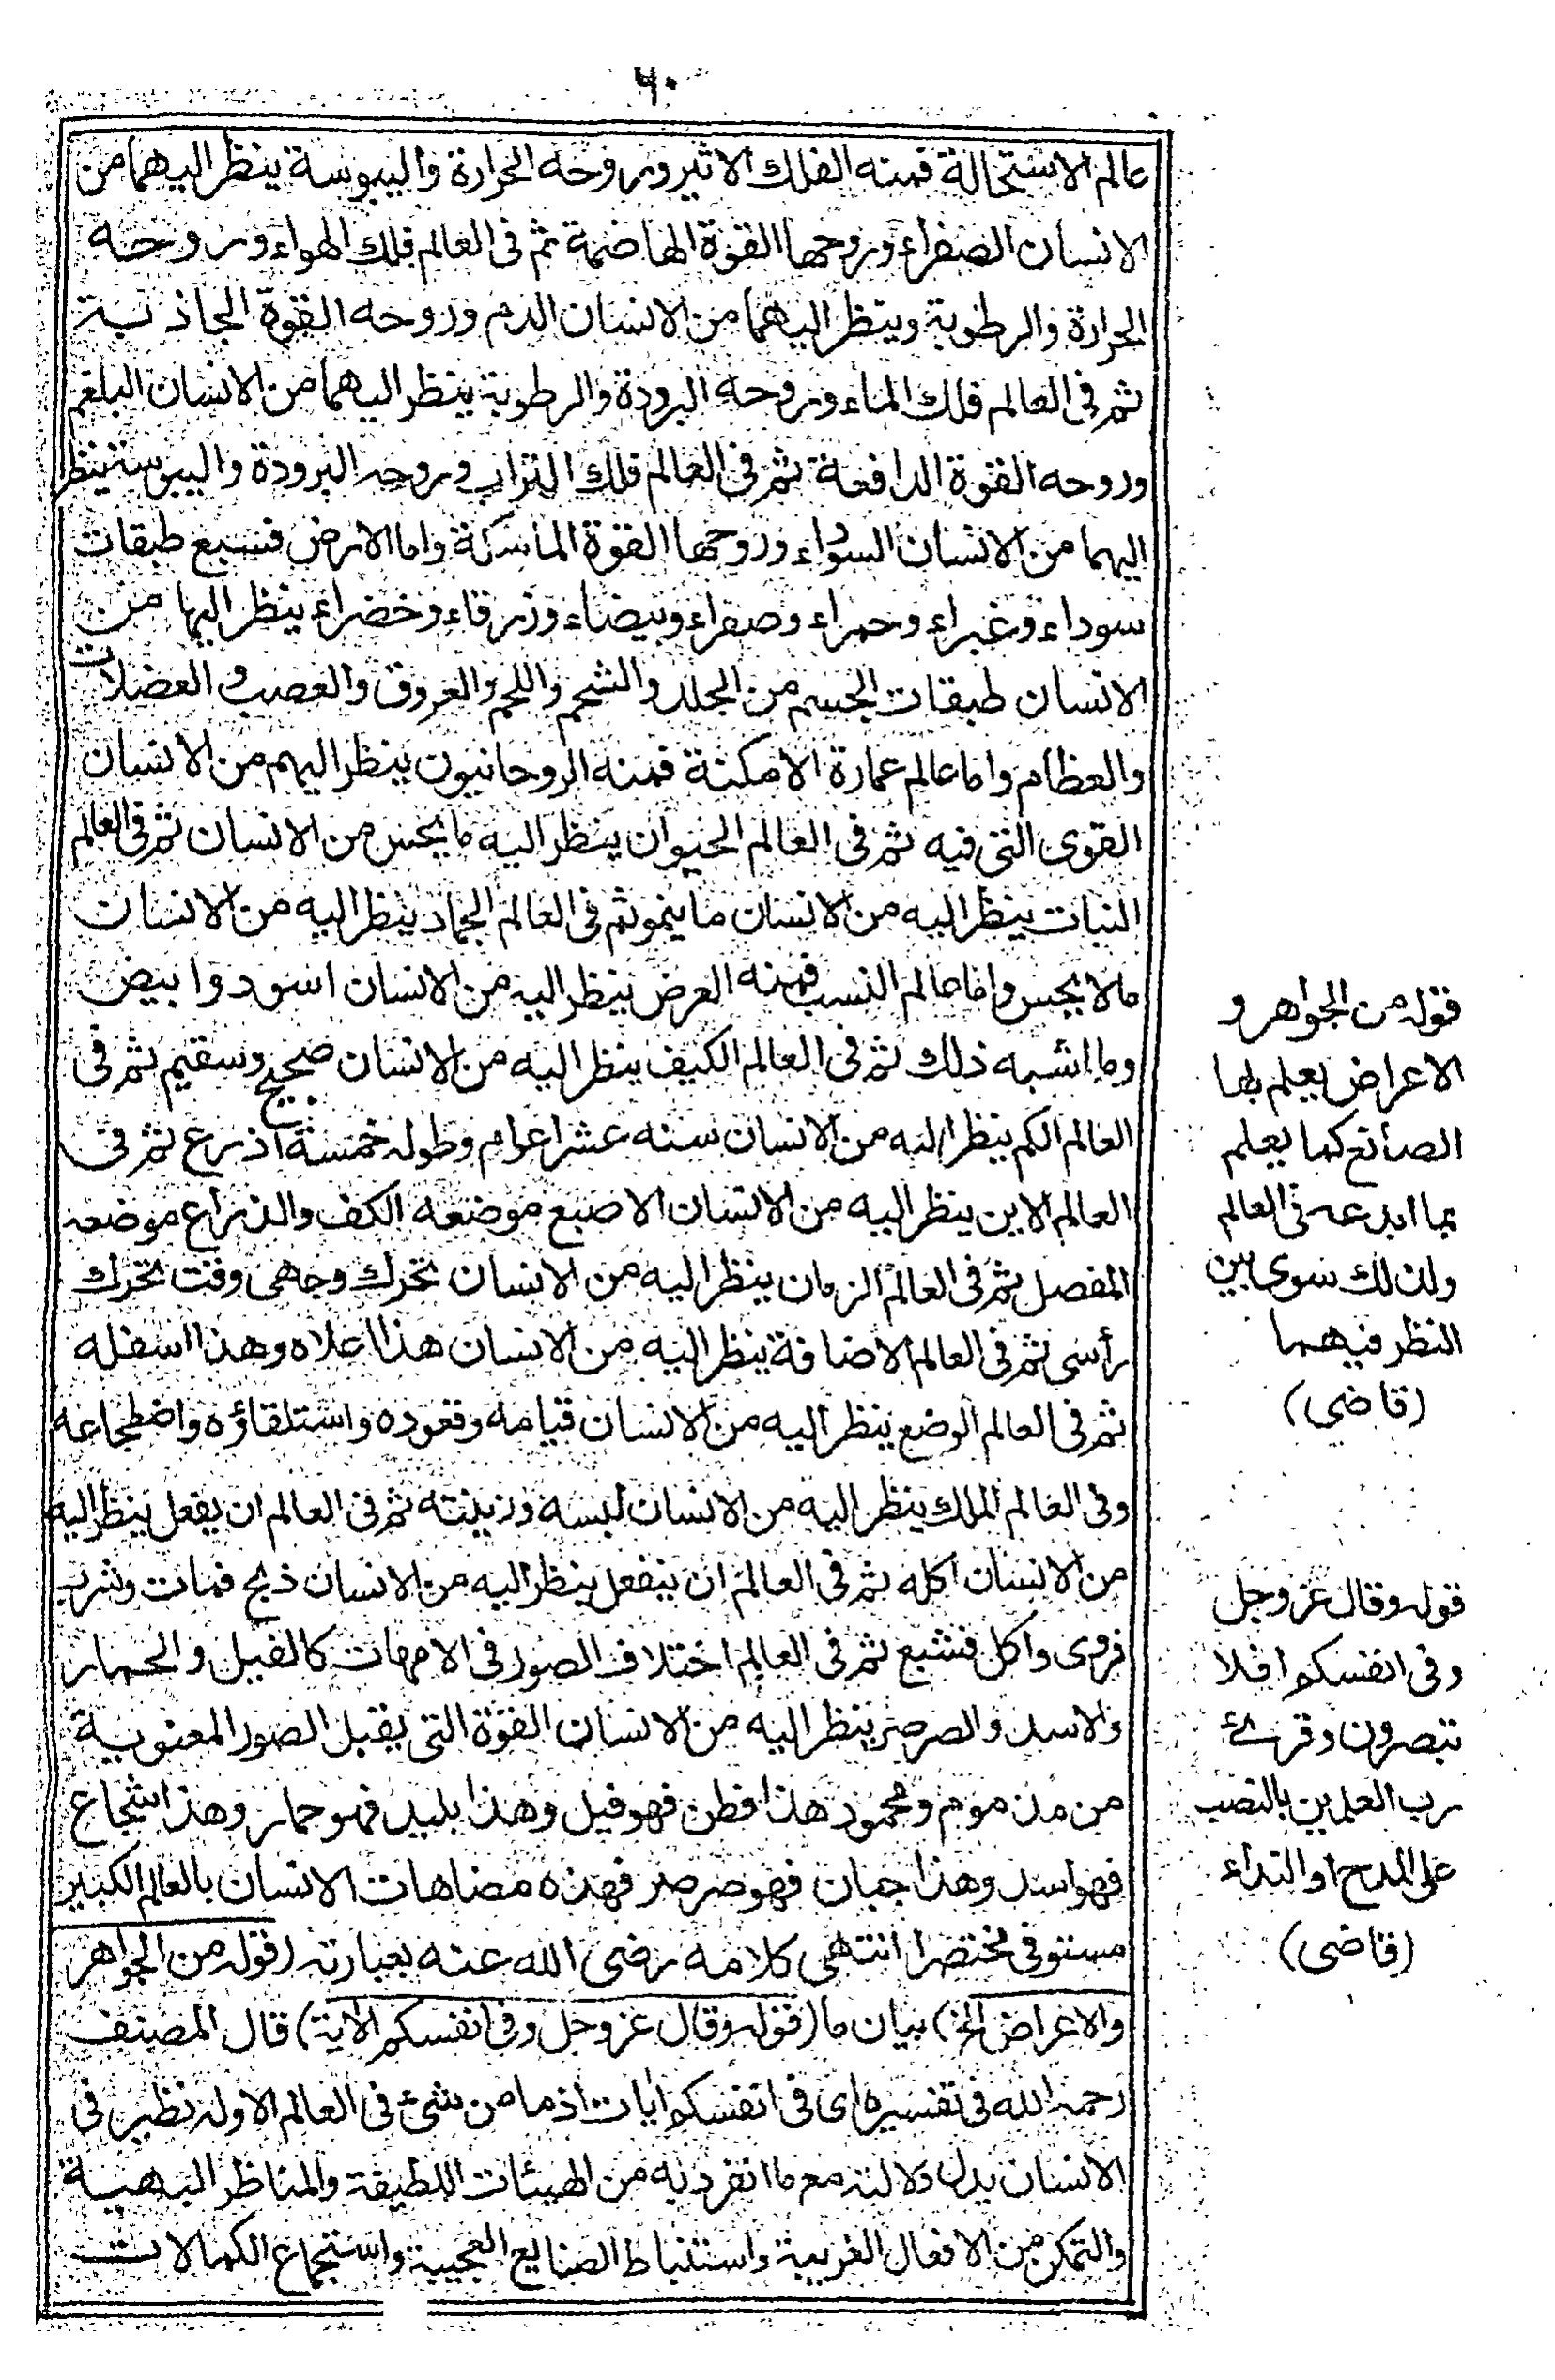 ٦٠
عالم الاستحالة فمنه الفلك الاثير وروحه الحرارة واليبوسة ينظر اليهما من
الانسان الصفراء وروحها القوة الهاضمة ثم فى العالم فلك الهواء وروحه
الحرارة والرطوبة وينظر اليهما من الانسان الدم وروحه القوة الجاذبة
ثم فى العالم فلك الماء وروحه البرودة والرطوبة ينظر اليهما من الانسان البلغم
وروحه القوة الدافعة ثم فى العالم فلك التراب وروحه البرودة واليبوسة ينظر
اليهما من الانسان السوداء وروحها القوة الماسكة واما الارض فسبع طبقات
سوداء وغبراء وحمراء وصفراء وبيضاء وزرقاء وخضراء ينظر اليها من
الانسان طبقات الجسم من الجلد والشحم واللحم والعروق والعصب والعضلات
والعظام واما عالم عمارة الامكنة فمنه الروحانيون ينظر اليهم من الانسان
القوى التى فيه ثم فى العالم الحيوان ينظر اليه ما يحس من الانسان ثم فى العالم
النبات ينظر اليه من الانسان ما ينمو ثم فى العالم الجماد ينظر اليه من الانسان
ما لا يحس واما عالم النسب فمنه العرض ينظر اليه من الانسان اسود وابيض
وما اشبه ذلك ثم فى العالم الكيف ينظر اليه من الانسان صحيح وسقيم ثم فى
العالم الكم ينظر اليه من الانسان سنه عشر اعوام وطوله خمسة اذرع ثم فى
العالم الاين ينظر اليه من الانسان الاصبع موضعه الكف والذراع موضعه
المفصل ثم فى العالم الزمان ينظر اليه من الانسان تحرك وجهى وقت تحرك
رأسى ثم فى العالم الاضافة ينظر اليه من الانسان هذا اعلاه وهذا اسفله
ثم فى العالم الوضع ينظر اليه من الانسان قيامه وقعوده واستلقاؤه واضطجاعه
وفى العالم الملك ينظر اليه من الانسان لبسه وزينته ثم فى العالم ان يفعل ينظر اليه
من الانسان اكله ثم فى العالم ان ينفعل ينظر اليه من الانسان ذبح فمات وشرب
فروى واكل فشبع ثم فى العالم اختلاف الصور فى الامهات كالفيل والحمار
والاسد والصرصر ينظر اليه من الانسان القوة التى يقبل الصور المعنوية
من مذموم ومحمود هذا فطن فهو فيل وهذا بليد فهو حمار وهذا شجاع
فهو اسد وهذا جبان فهو صرصر فهذه مضاهات الانسان بالعالم الكبير
مستوفى مختصرا انتهى كلامه رضى الله عنه بعبارته (قوله من الجواهر
والاعراض الخ) بيان ما (قوله وقال عز وجل وفى انفسكم الاية) قال المصنف
رحمه الله فى تفسيره اى فى انفسكم ايات اذ ما من شئ فى العالم الا وله نظير فى
الانسان يدل دلالته مع ما انفرد به من الهيئات اللطيفة والمناظر البهية
والتمكن من الافعال الغريبة واستنباط الصنايع العجيبة واستجماع الكمالات
قوله من الجواهر و
الاعراض يعلم بها
الصانع كما يعلم
بما ابدعه فى العالم
ولذلك سوى بين
النظر فيهما
(قاضى)
قوله وقال عز وجل
وفى انفسكم افلا
تبصرون وقرئ
رب العلمين بالنصب
على المدح او النداء
(قاضى)